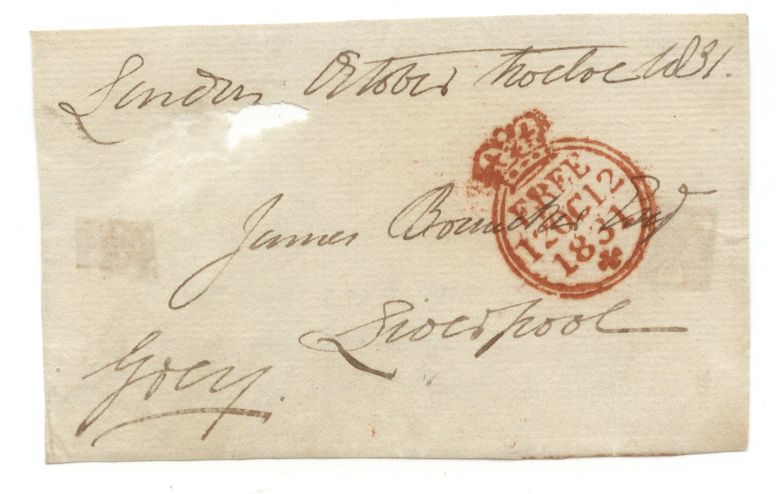 London October twelve 1831.
FREE
12 OC 12
1831
James Esqr
Liverpool
Grey.